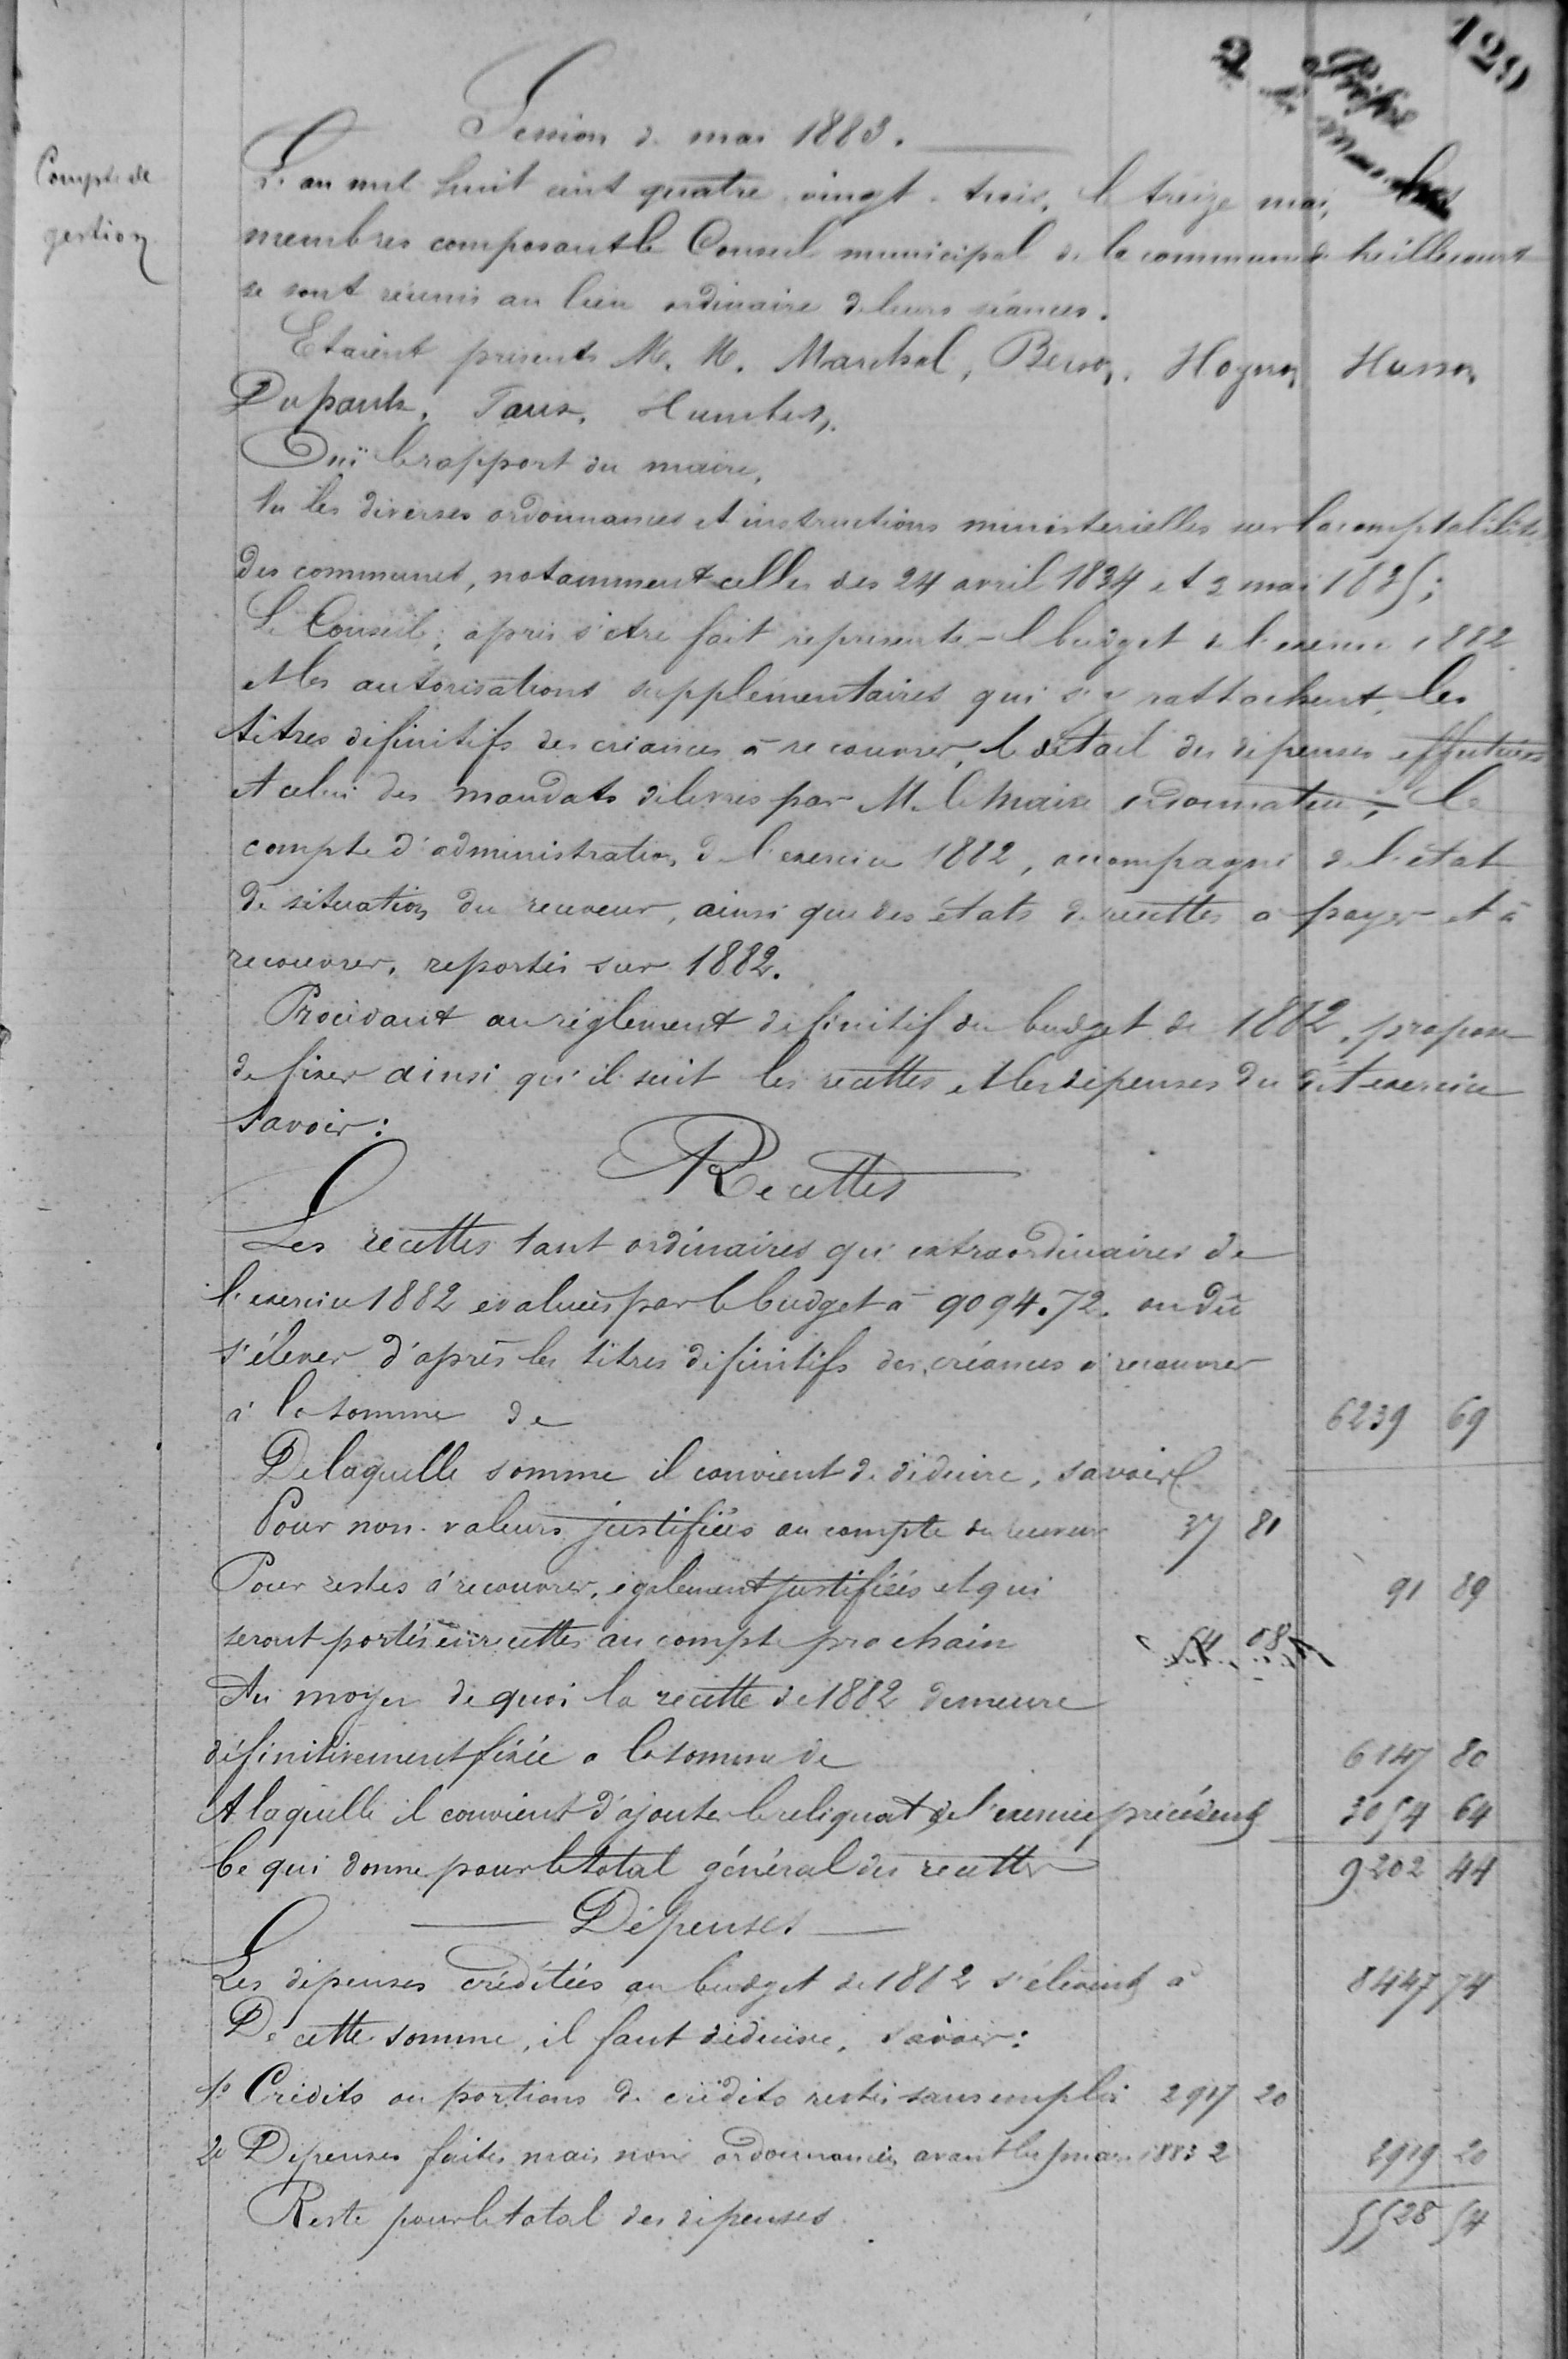 129
2
Session de mai 1883.
Compte de
gestion
L'an mil huit cent quatre-vingt-trois, le treize mai, les
membres composant le Conseil municipal de la commune de heillecourt
se sont réunis au lieu ordinaire de leurs séances.
Etaient présents M. M. Marchal, Husson
Taux, Humbert.
Ouï le rapport du maire,
Vu les diverses ordonnances et instructions ministerielles sur la comptabilité
des communes, notamment celles des 24 avril 1834 et 2 mai 1835;
Le Conseil, après s'etre fait représenter le budget de l'exercice 1882
et les autorisations supplémentaires qui s'y rattachent, les
titres définitifs des créances à recouvrer, le détail des dépenses effectuées
et celui des mandats délivrés par M. le Maire ordonnateur; le
compte d'administration de l'exercice 1882, accompagné de l'état
de situation du receveur, ainsi que des états de recettes à payer et à
recouvrer, reportés sur 1882.
Procédant au réglement définitif du budget de 1882, propose
de fixer ainsi qu'il suit les recettes et les dépenses du dit exercice
Savoir:
Recettes
Les recettes tant ordinaires qu'extraordinaires de
l'exercice 1882 evaluées par le budget à 9094.72. on dû
s'élever d'après les titres définitifs des créances à recouvrer
à la somme de 6239 69
De laquelle somme il convient de déduire, savoir
Pour non-valeurs justifiées au compte du receveur 37 81
Pour restes à recouvrer, également justifiées et qui 91 89
seront portés en recettes au compte prochain 54 08
Au moyen de quoi la recette de 1882 demeure
définitivement fixée à la somme de 6147 80
A laquelle il convient d'ajouter le reliquat de l'exercice précédent 3054 64
Ce qui donne pour le total général des recettes 9202 44
Dépenses
Les dépenses créditées au budget de 1882 s'élèvent à 8447 74
De cette somme, il faut déduire, savoir:
1º Crédits ou portions de crédits restés sans emploi 2917 20
2º Dépenses faites mais non ordonnancées avant le mars 1883 2 2919 20
Reste pour le total des dépenses 5528 54